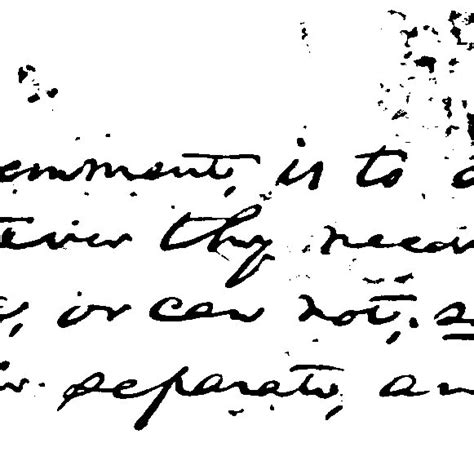 ernment, is to
tever they need
, or can not, so
ir separate, an